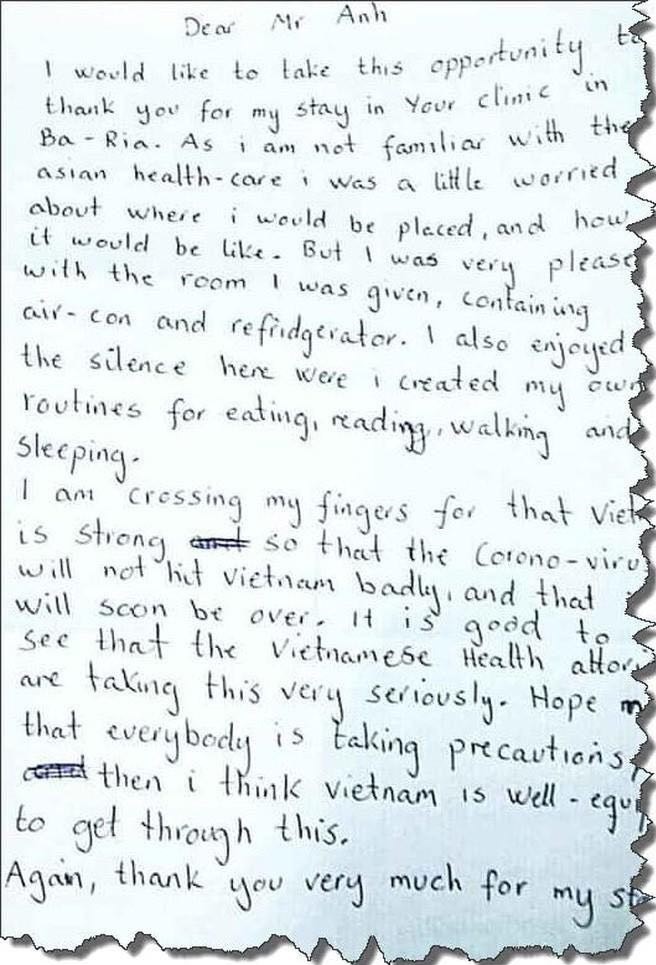 Dear Mr Anh
I would like to take this opportunity to
thank you for my stay in Your clinic in
Ba-Ria. As i am not familiar with the
asian health-care i was a little worried
about where i would be placed, and how
it would be like. But I was very please
with the room I was given, containing
air-con and refridgerator. I also enjoyed
the silence here were i created my own
routines for eating, reading, walking and
sleeping.
I am crossing my fingers for that Viet
is strong so that the Corono-viru
will not hit Vietnam badly, and that
will soon be over. It is good to
see that the Vietnamese Health
are taking this very seriously. Hope
that everybody is taking precautions,
then i think vietnam is well-equi
to get through this.
Again, thank you very much for my st